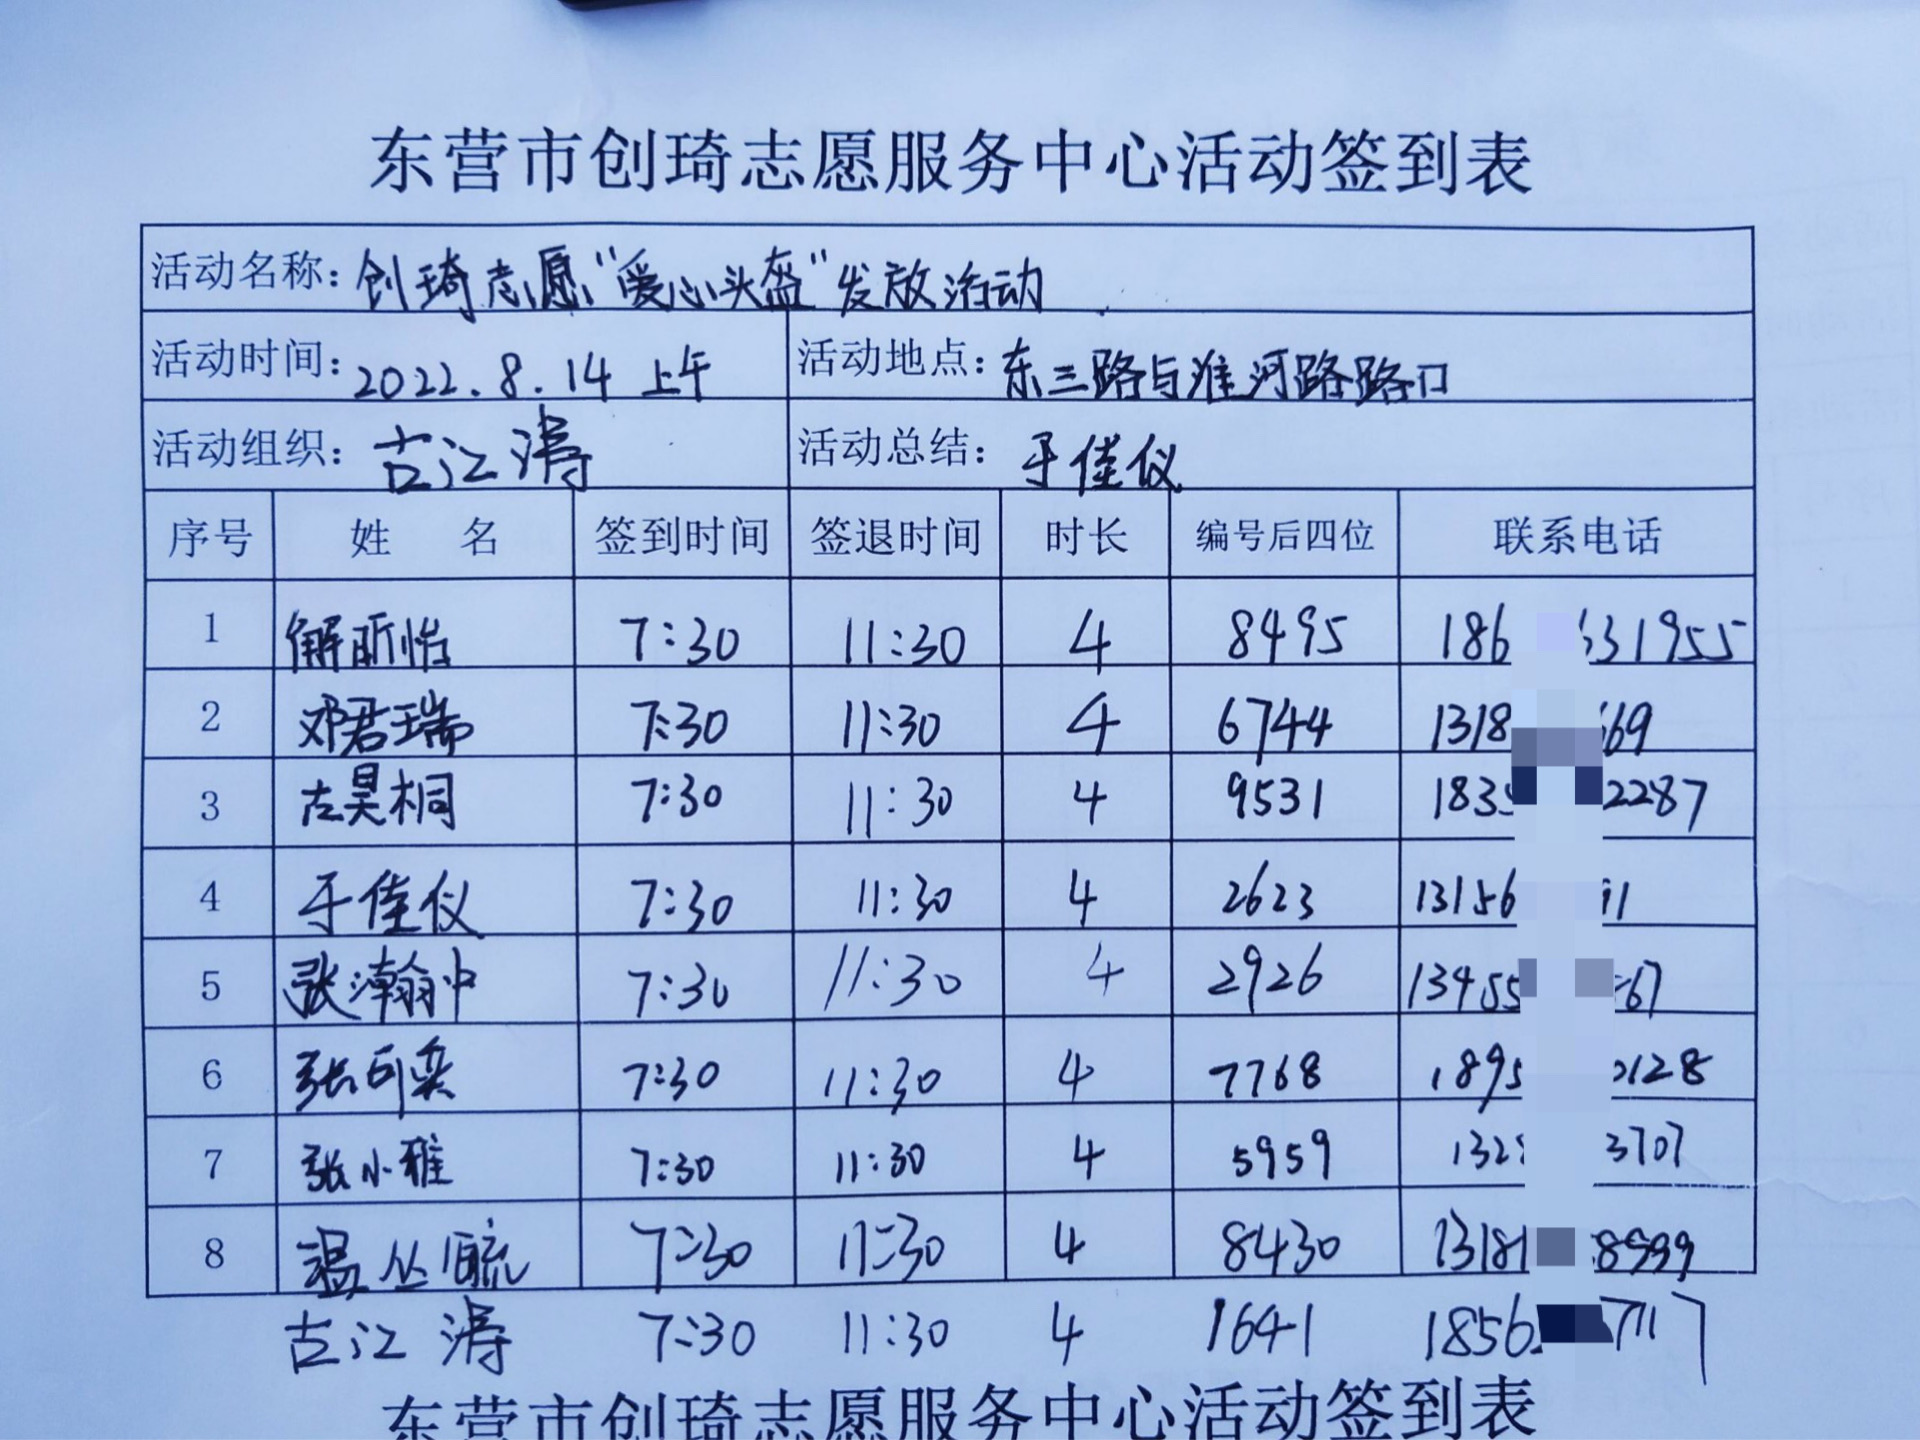 东营市创琦志愿服务中心活动签到表
活动名称：创琦志愿“爱心头盔”发放活动
活动时间：2022.8.14 上午 活动地点：东三路与淮河路路口
活动组织：古江涛 活动总结：于佳仪
序号 姓 名 签到时间 签退时间 时长 编号后四位 联系电话
1 解昕怡 7:30 11:30 4 8495 186 631955
2 邓君瑞 7:30 11:30 4 6744 1318 669
3 古昊桐 7:30 11:30 4 9531 1835 2287
4 于佳仪 7:30 11:30 4 2623 13156 91
5 张瀚中 7:30 11:30 4 2926 13455 67
6 张可奕 7:30 11:30 4 7768 1895 0128
7 张小雅 7:30 11:30 4 5959 132 3707
8 温丛毓 7:30 11:30 4 8430 1318 8999
古江涛 7:30 11:30 4 1641 1856 7117
东营市创琦志愿服务中心活动签到表